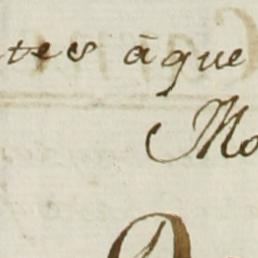 tes âque
Mo